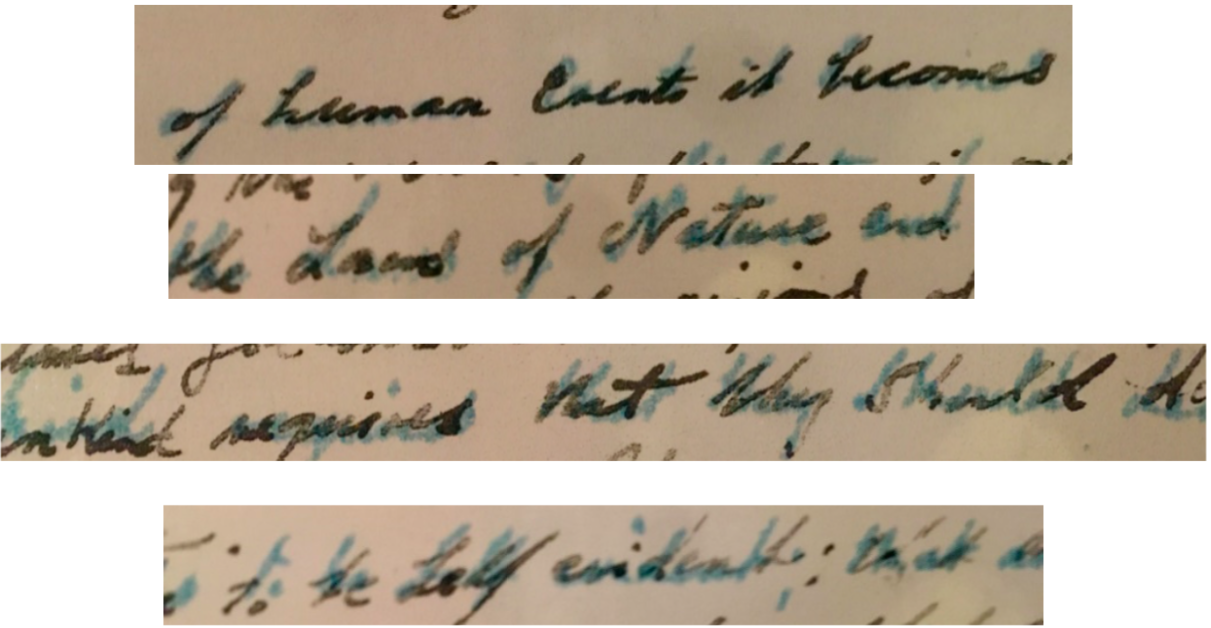 of human Events it becomes
the Laws of Nature and
requires that they should
to be self evident; that